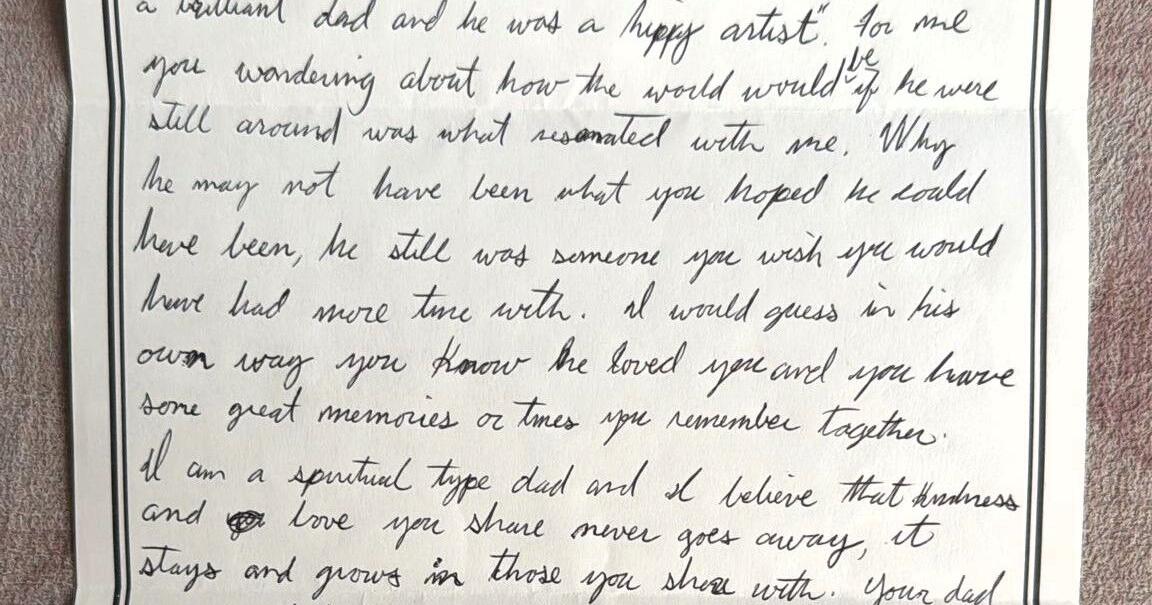 a brilliant dad and he was a hippy artist". For me
you wondering about how the world would be if he were
still around was what resonated with me. Why
he may not have been what you hoped he could
have been, he still was someone you wish you would
have had more time with. I would guess in his
own way you know he loved you and you have
some great memories or times you remember together.
I am a spiritual type dad and I believe that kindness
and love you share never goes away, it
stays and grows in those you share with. Your dad